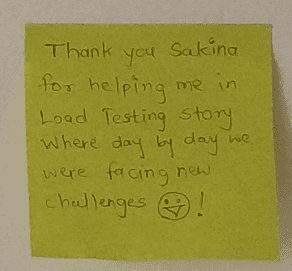 Thank you Sakina
for helping me in
Load Testing Story
where day by day we
were facing new
challenges !